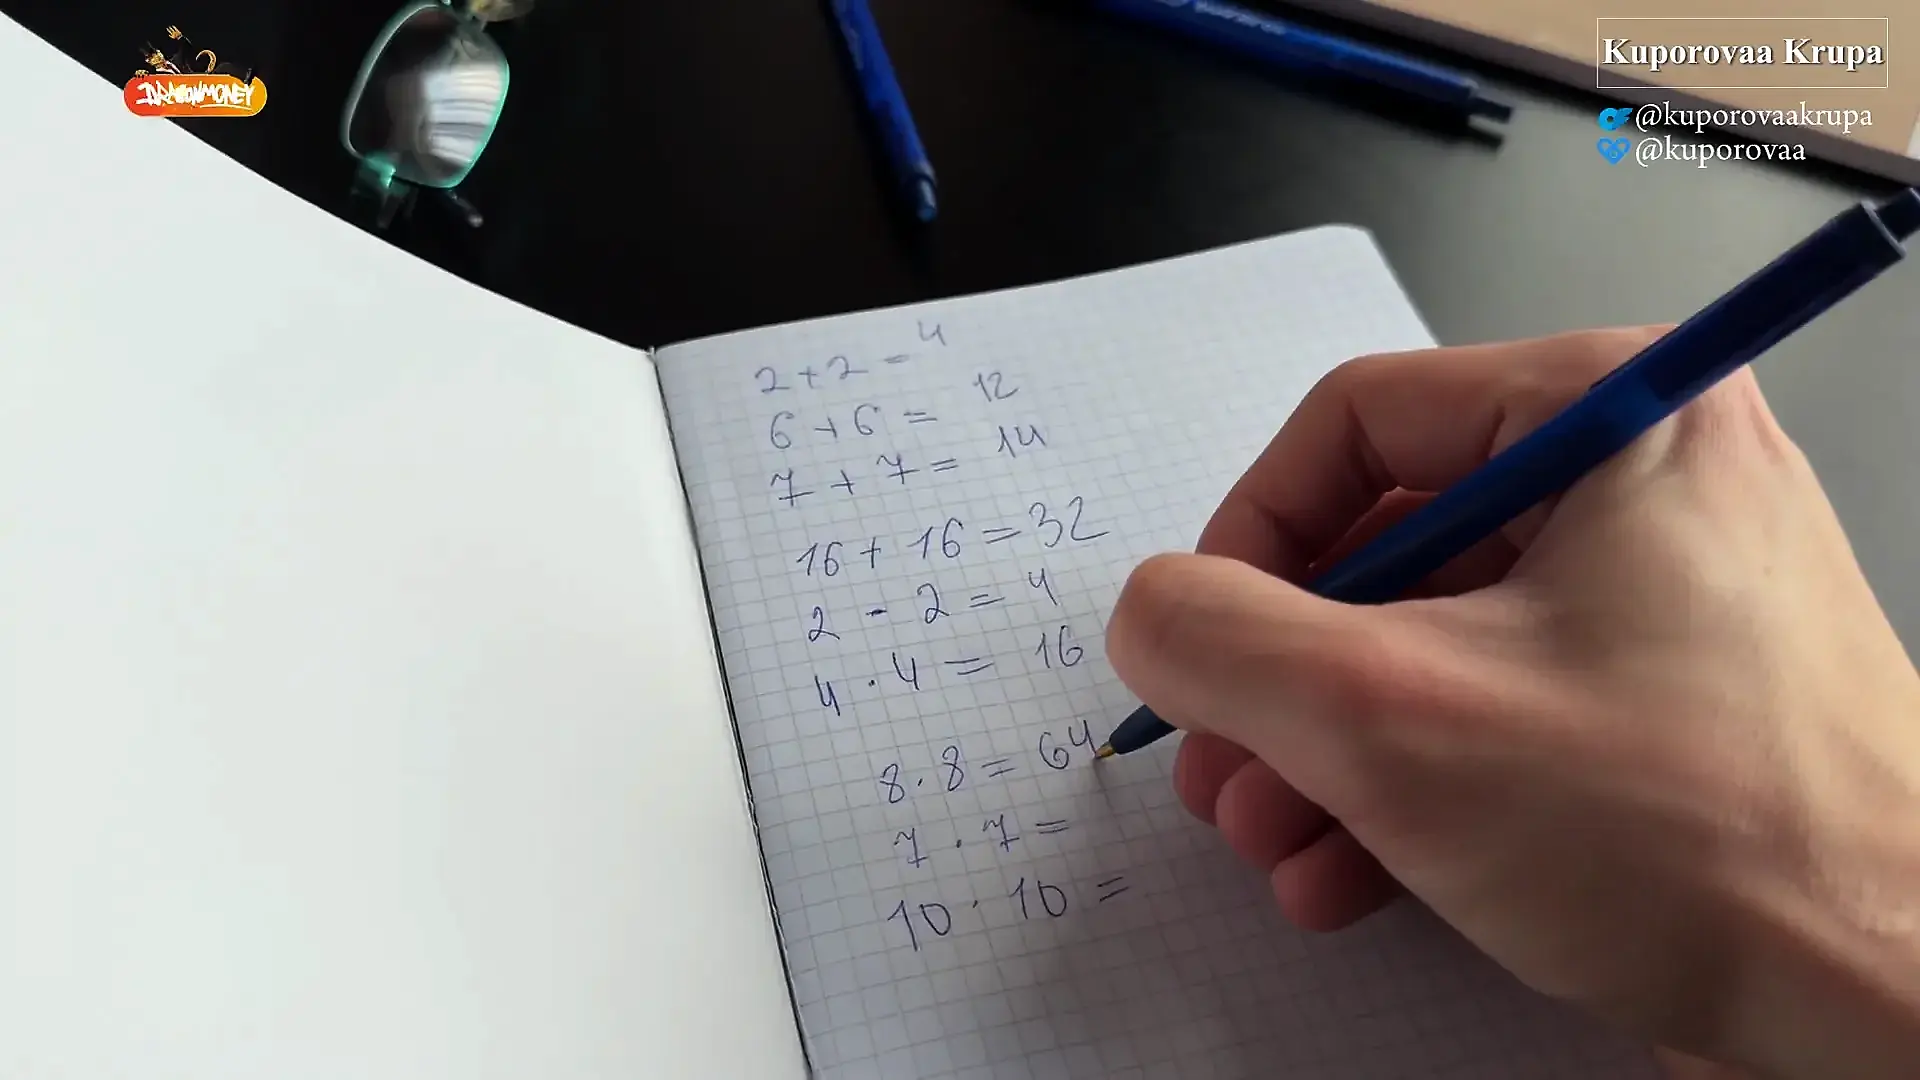 DRAGONMONEY
Kuporovaa Krupa
@kuporovaakrupa
@kuporovaa
2 + 2 = 4
6 + 6 = 12
7 + 7 = 14
16 + 16 = 32
2 - 2 = 4
4 · 4 = 16
8 · 8 = 64
7 · 7 =
10 · 10 =